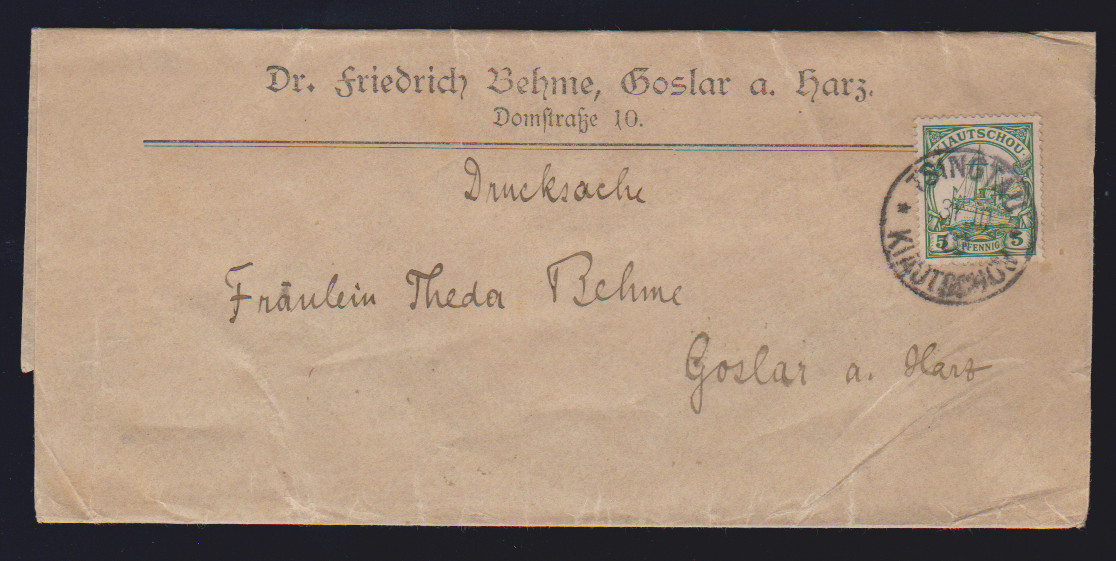 Dr. Friedrich Behme, Goslar a. Harz.
Domstraße 10.
Drucksache
KIAUTSCHOU
5 PFENNIG 5
TSINGTAU
* KIAUTSCHOU
Fräulein Theda Behme
Goslar a. Harz